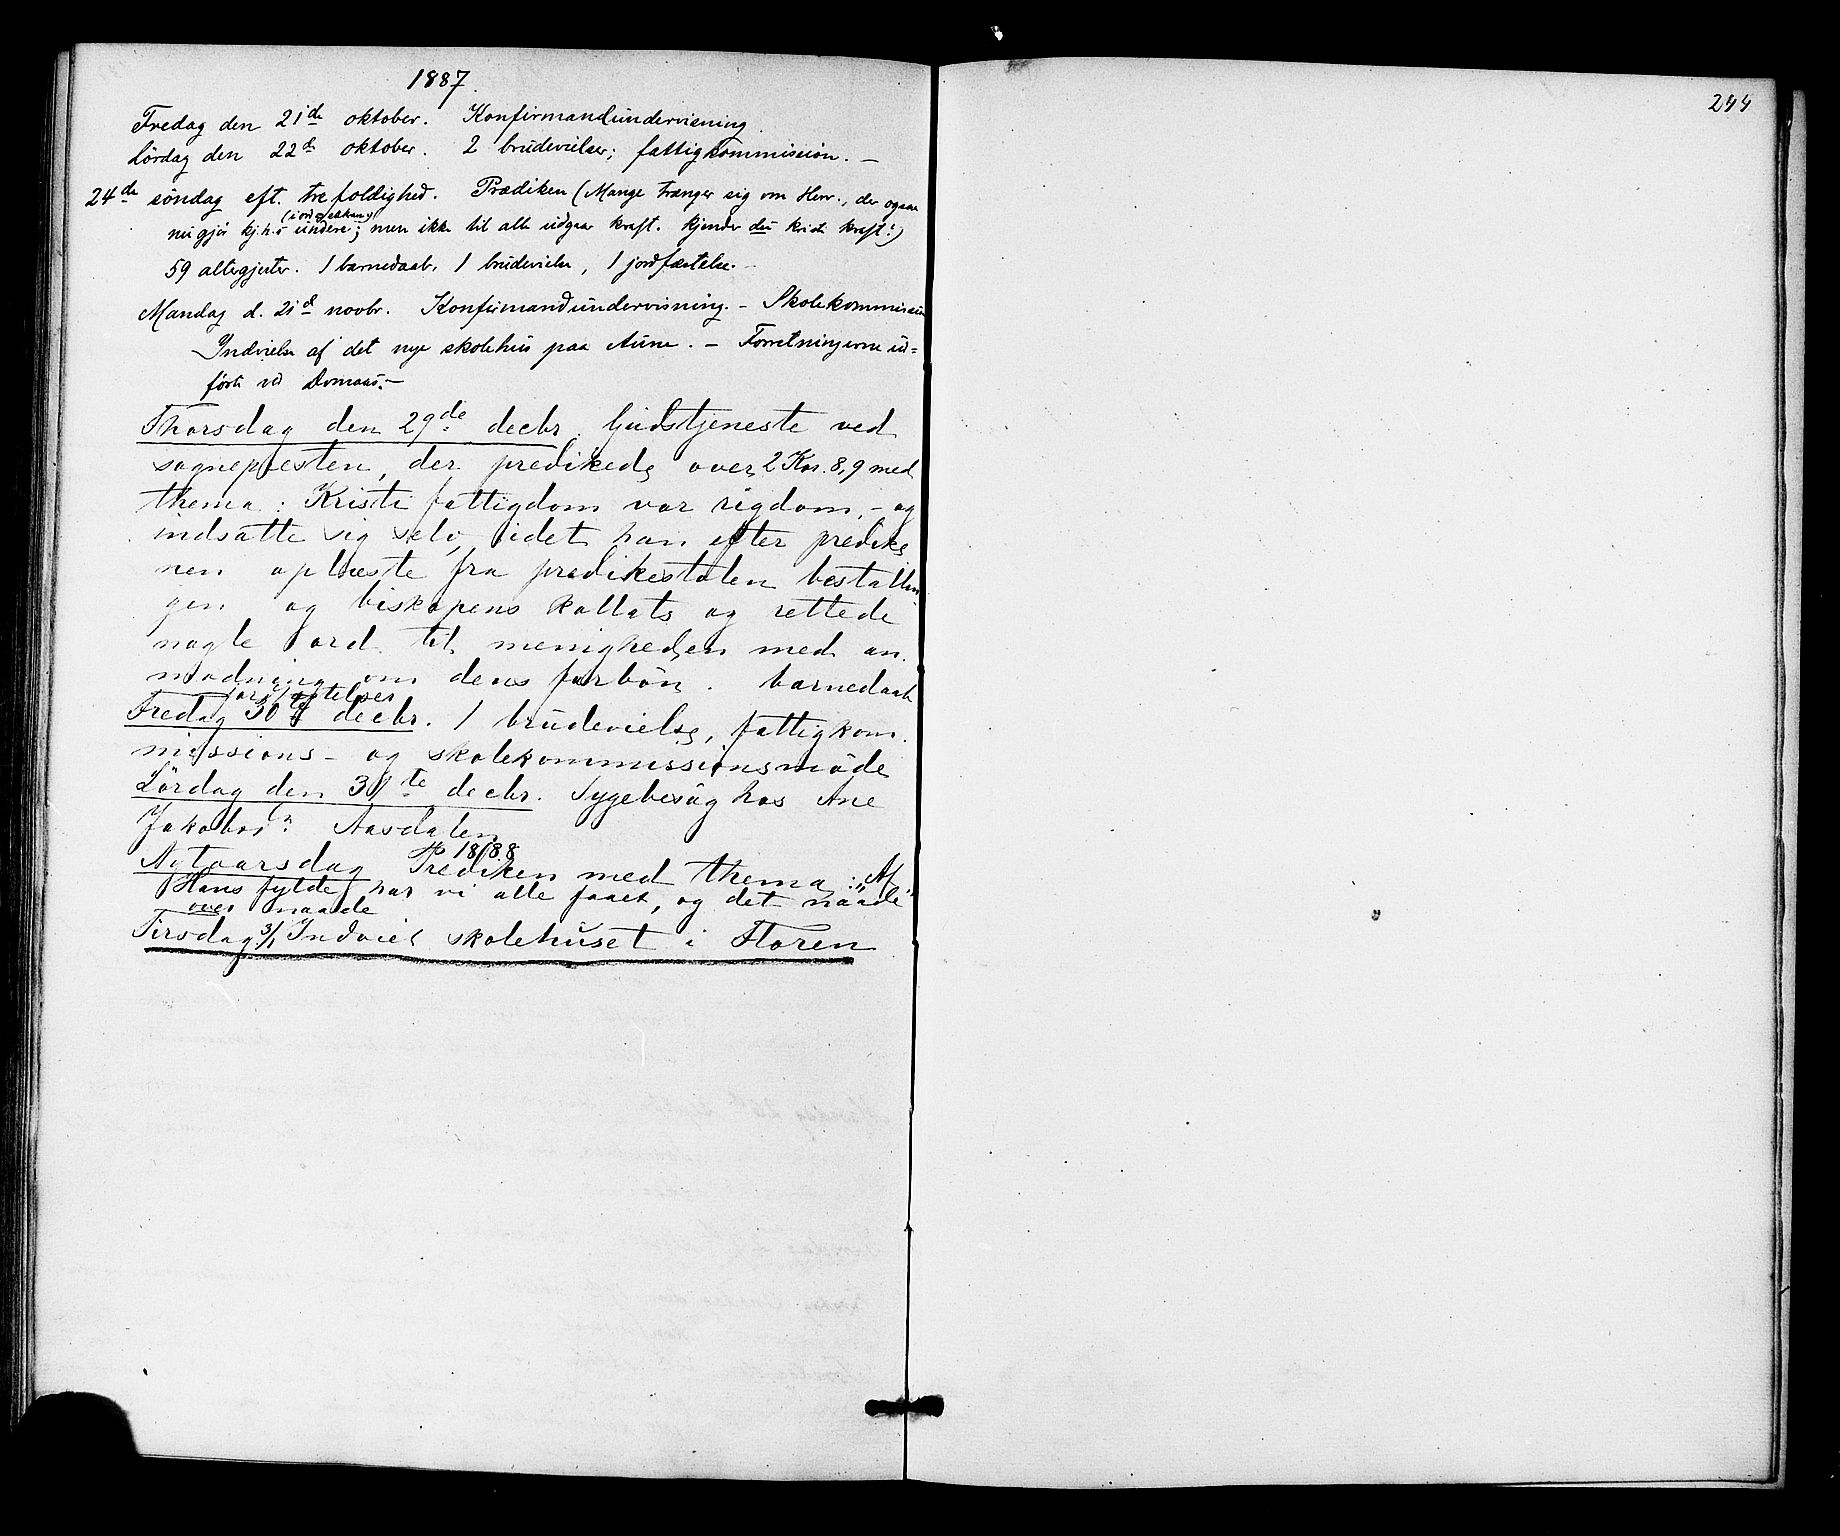 1887.
Fredag den 21de oktober. Konfirmandundervisning.
Lördag den 22d oktober. 2 brudevielser; fattigkommission. —
24de söndag eft. trefoldighed. Prædiken (Mange trænger sig om Herr., der ogsaa
nu gjör undere; men ikke til alle udgaar kraft. Kjender du Kristi kraft?)
59 altergjester. 1 barnedaab, 1 brudevielse, 1 jordfæstelse. —
Mandag d. 21d novbr. Konfirmandundervisning. — Skolekommission
Indvielse af det nye skolehus paa Aune. — Forretningerne ud-
førte ved Domaas. —
Thorsdag den 29de decbr. Gudstjeneste ved
sognepresten, der predikede over 2 Kor. 8,9 med
thema: Kristi fattigdom vor rigdom, — og
indsatte sig selv, idet han efter predike
nen oplæste fra predikestolen bestallin-
gen og biskopens kollats og rettede
nogle ord til menigheden med an-
modning om dens forbön. barnedaab
jordfæstelser
Fredag 30te decbr. 1 brudevielse, fattigkom-
missions- og skolekommissionsmöde
Lördag den 31te decbr. Sygebesög hos Ane
Jakobs: Aasdalen
1888
Nytaarsdag Prediken med thema: "Af
Hans fylde har vi alle faaet, og det naade
over naade
Tirsdag 3/1 Indviet skolehuset i Floren
244